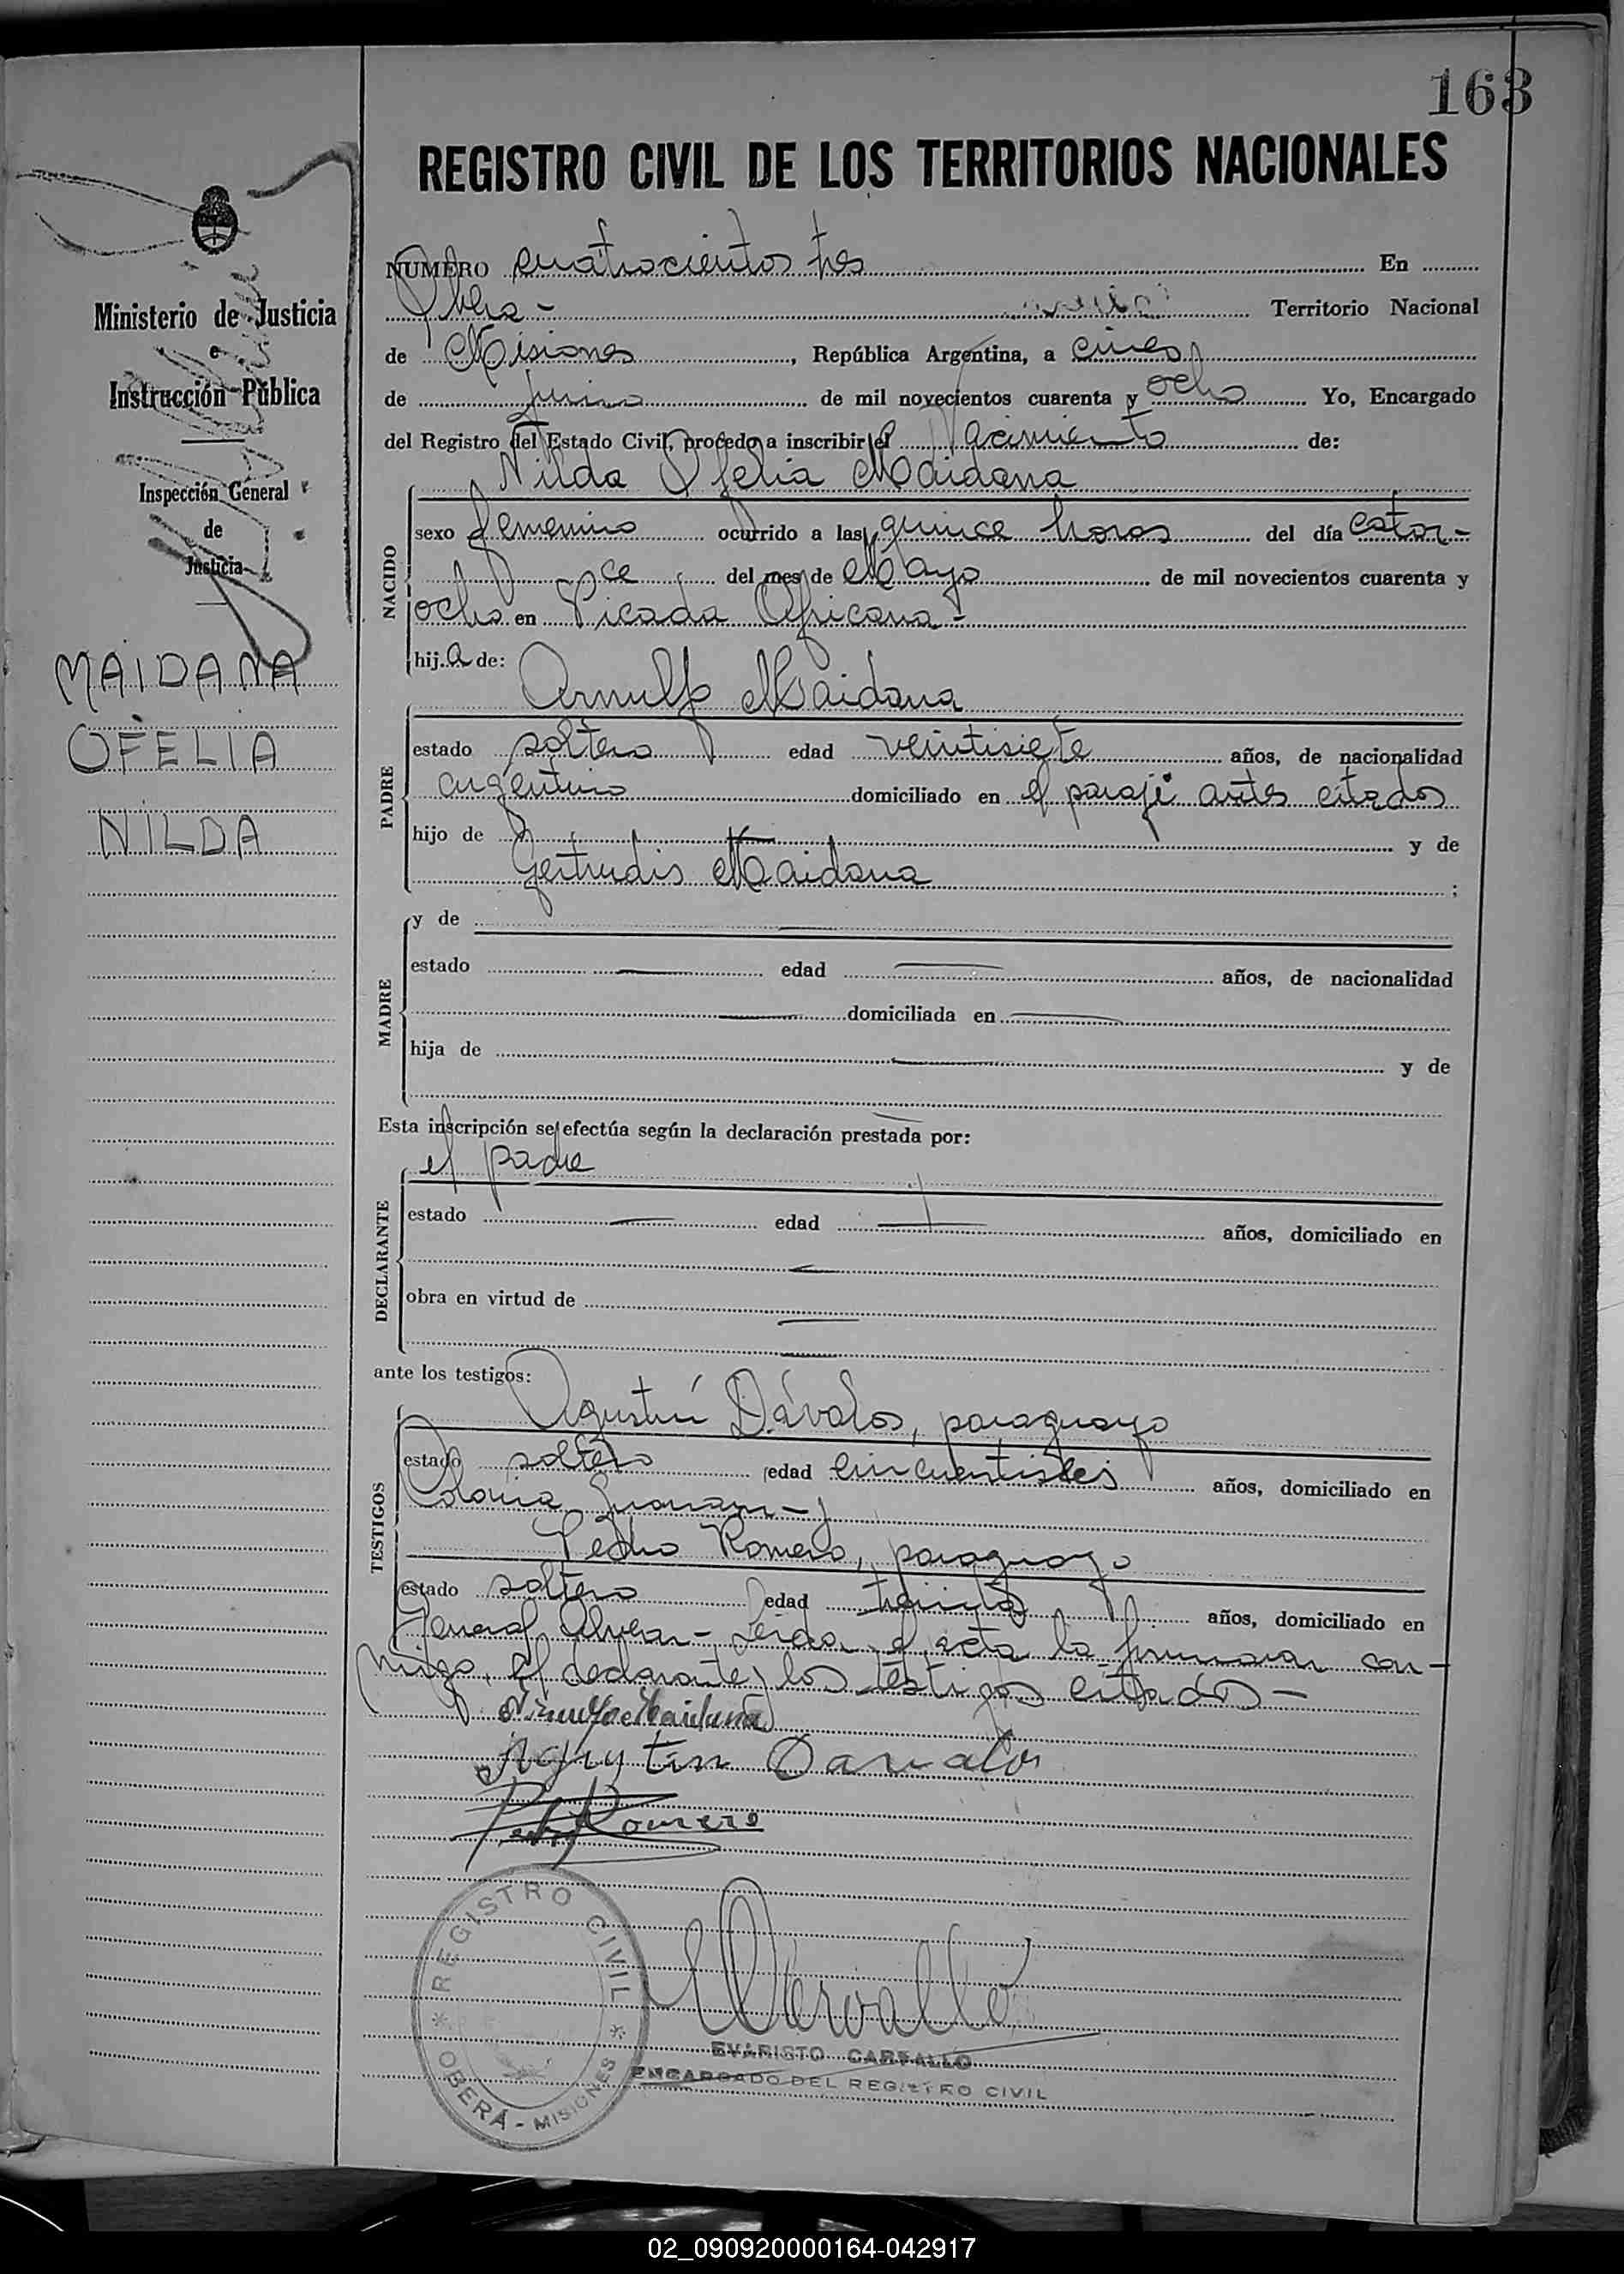 163
REGISTRO CIVIL DE LOS TERRITORIOS NACIONALES
Ministerio de Justicia
e
Instrucción Pública
Inspección General
de
Justicia
MAIDANA
OFELIA
NILDA
NUMERO cuatrocientos tres En
Obera - Territorio Nacional
de Misiones, República Argentina, a cinco
de junio de mil novecientos cuarenta y ocho Yo, Encargado
del Registro del Estado Civil, procedo a inscribir el Nacimiento de:
Nilda Ofelia Maidana
NACIDO
sexo femenino ocurrido a las quince horas del día cator-
ce del mes de Mayo de mil novecientos cuarenta y
ocho en Picada Africana -
hija de:
Arnulfo Maidana
PADRE
estado soltero edad veintisiete años, de nacionalidad
argentino domiciliado en el paraje antes citados
hijo de y de
Gertrudis Maidana ;
MADRE
y de
estado edad años, de nacionalidad
domiciliada en
hija de y de
Esta inscripción se efectúa según la declaración prestada por:
el padre
DECLARANTE
estado edad años, domiciliado en
obra en virtud de
ante los testigos:
Agustín Dávalos, paraguayo
TESTIGOS
estado soltero edad años, domiciliado en
Colonia -
Pedro Romero, paraguayo
estado soltero edad treinta años, domiciliado en
General Alvear - Leida el acta la firmaran con-
migo, el declarante y los testigos citados -
Arnulfo Maidana
Agustin Davalos
Pedro Romero
REGISTRO CIVIL
* OBERÁ - MISIONES *
EVARISTO CARVALLO
ENCARGADO DEL REGISTRO CIVIL
02_090920000164-042917